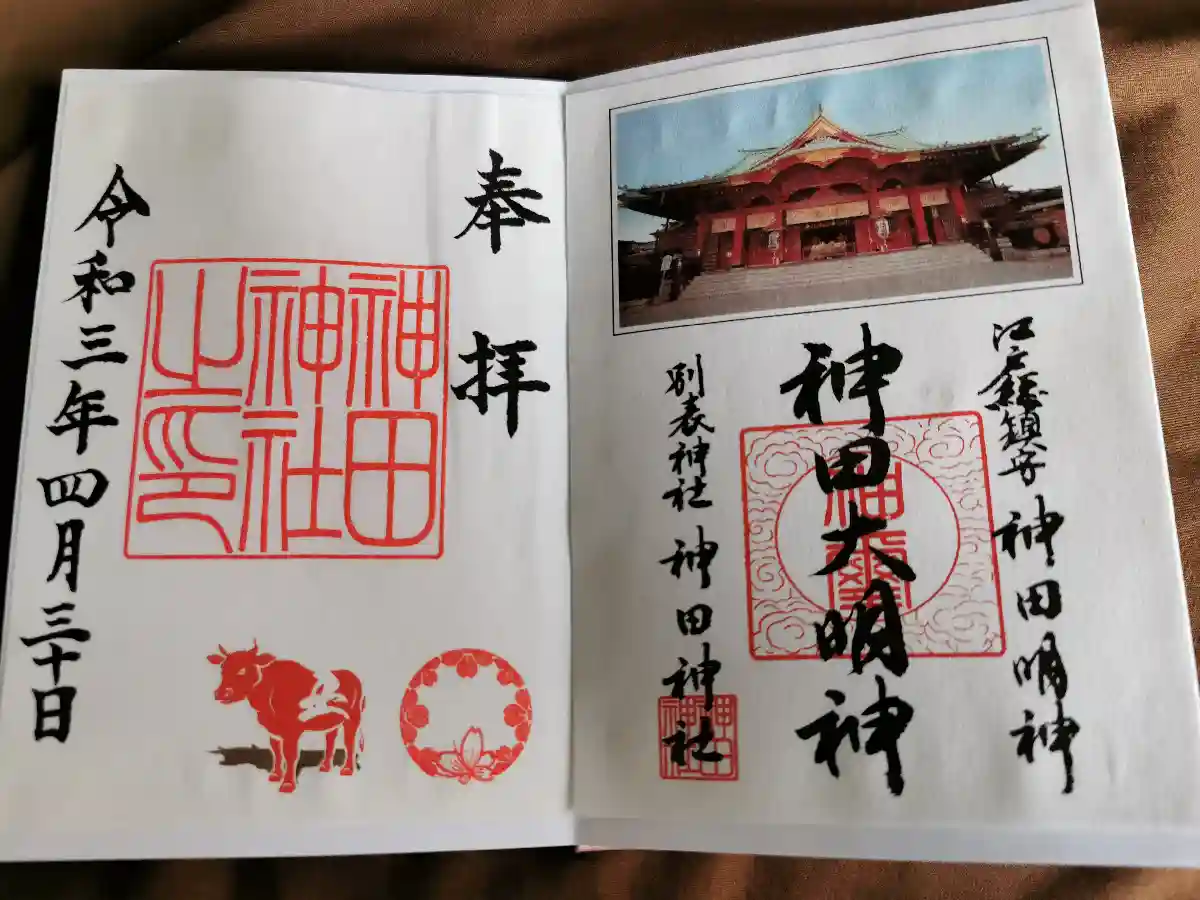 江戸総鎮守 神田明神
神田大明神
神璽
別表神社 神田神社
神田
神社
奉拝
神田
神社
之印
令和三年四月三十日